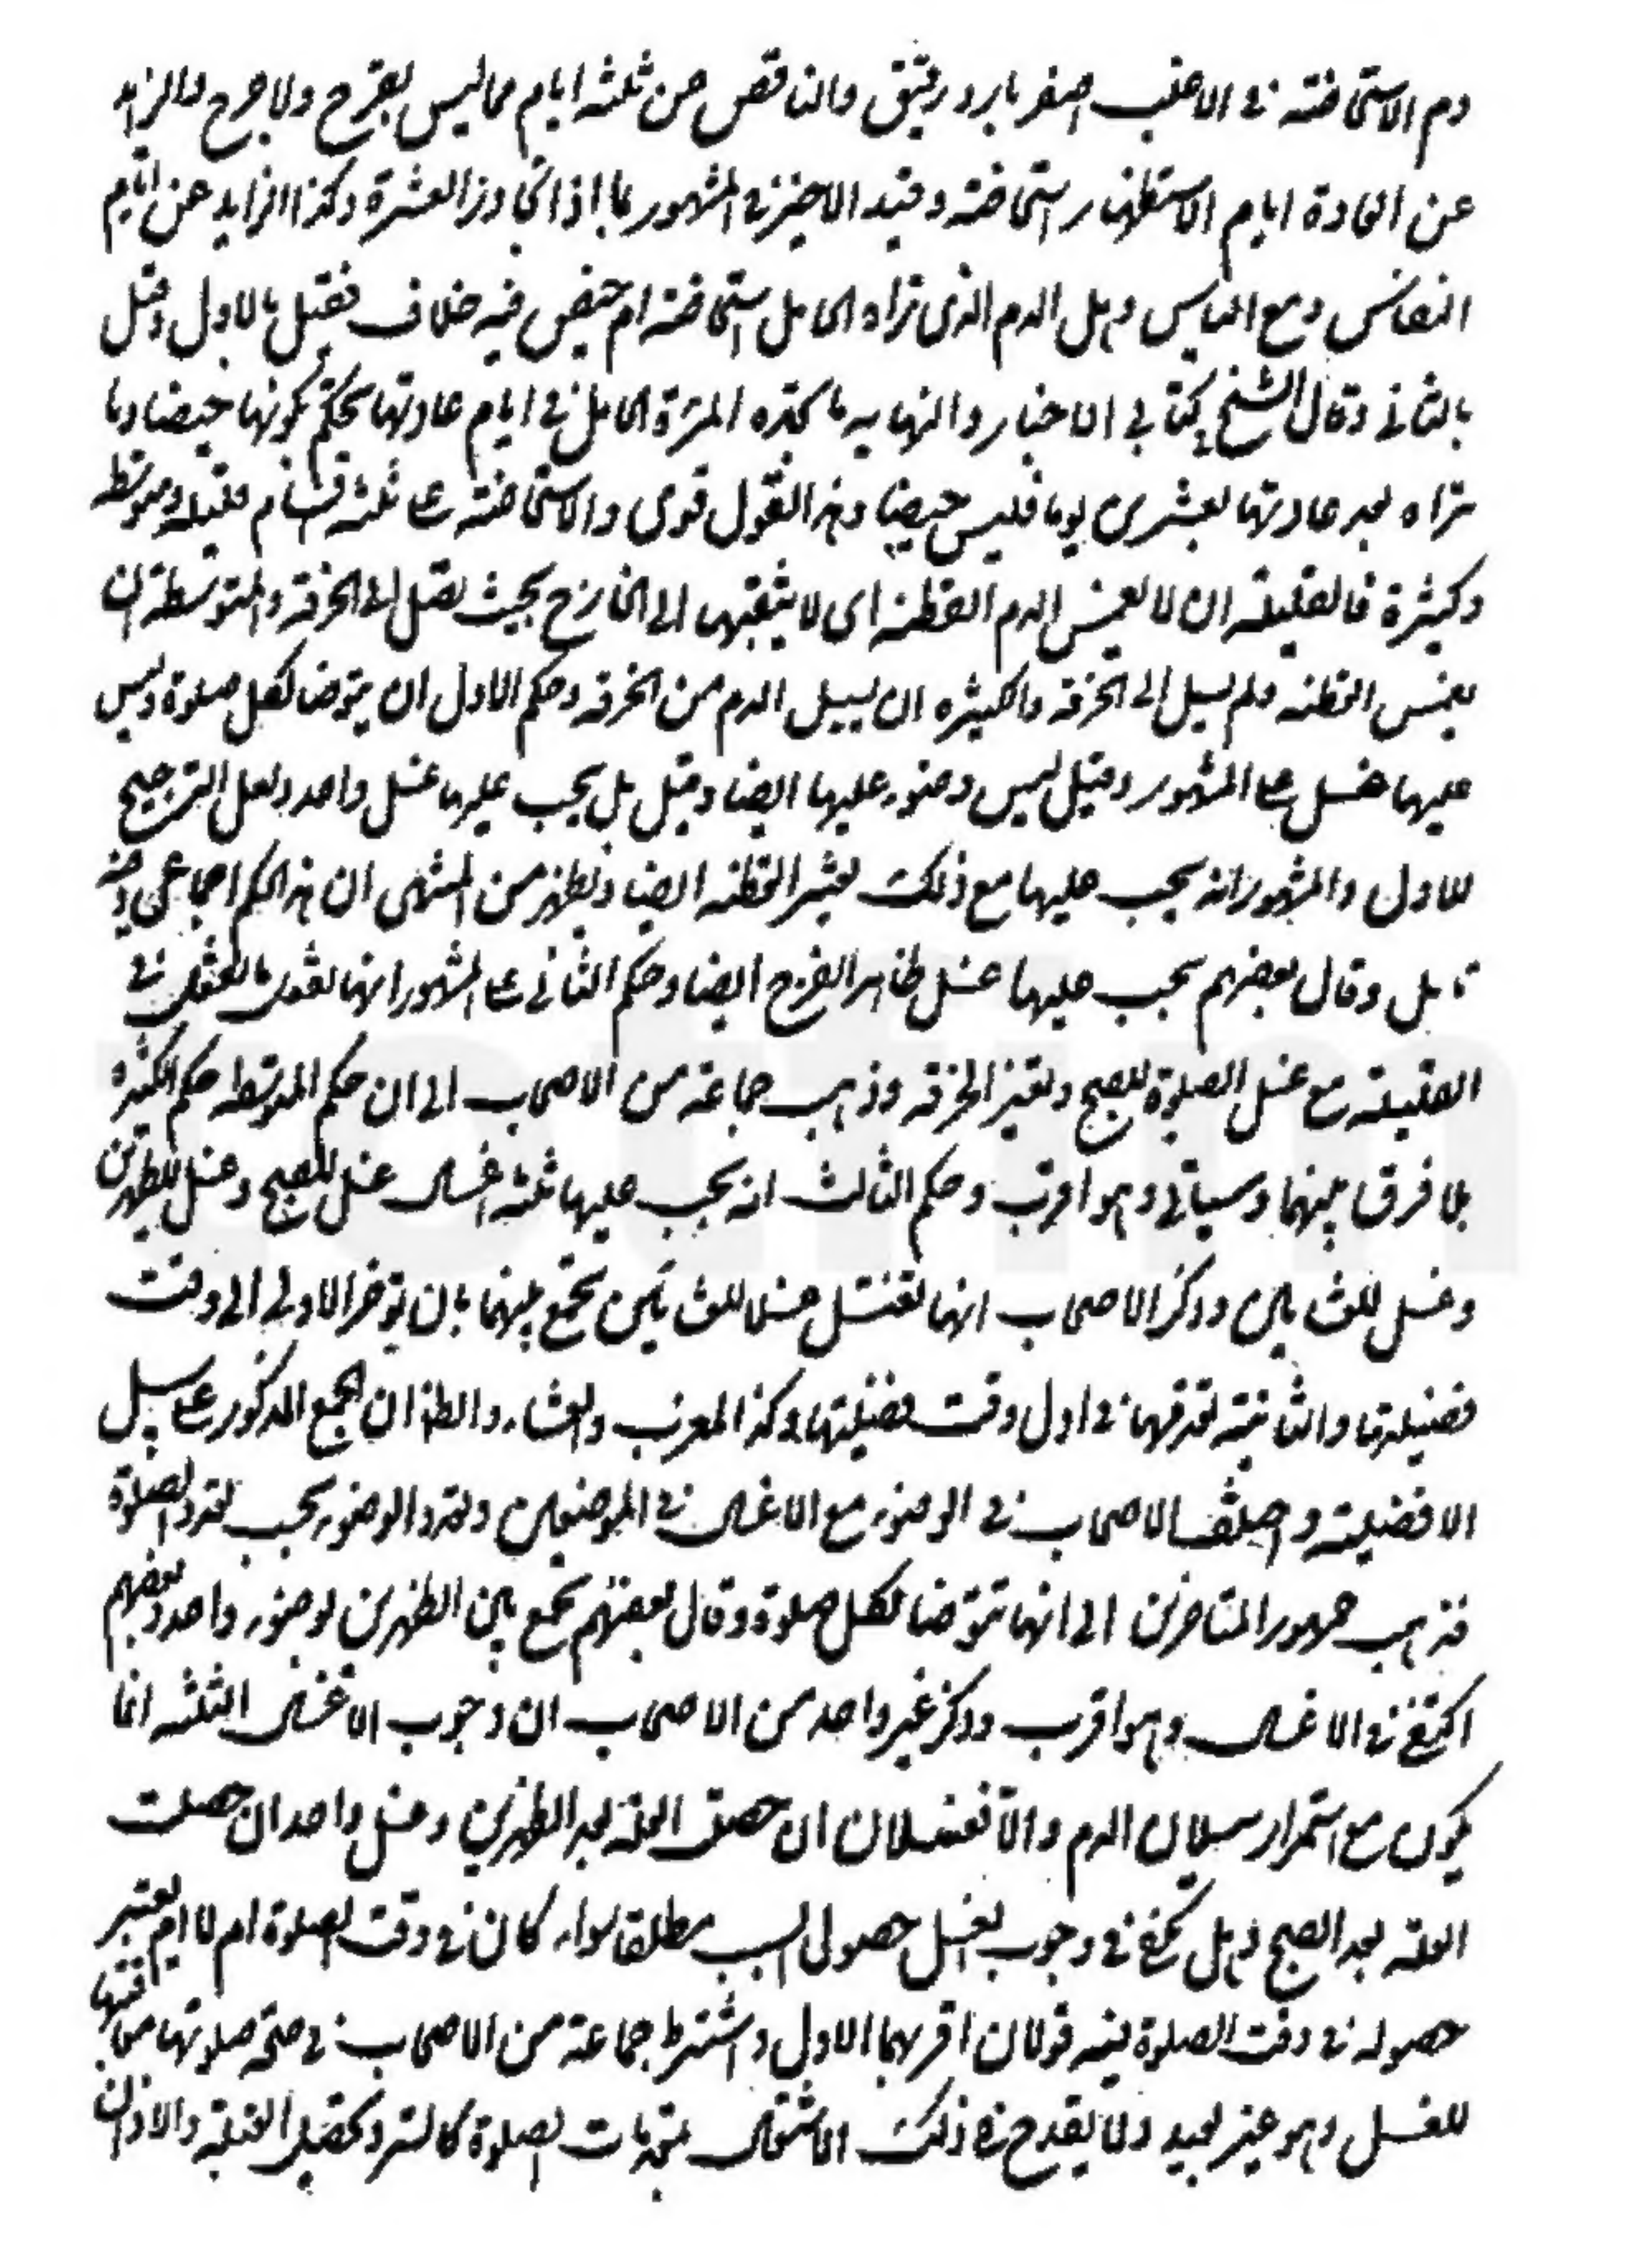 دم الاستحاضة في الاغلب اصفر بارد رقيق والناقص من ثلثه ايام مما ليس بقرح ولا جرح والزايد
عن العادة ايام الاستظهار استحاضة وقيد الاخير في المشهور بما اذا تجاوز العشرة وكذا الزايد عن ايام
النفاس ومع الياس وهل الدم الذى تراه الحامل استحاضة ام حيض فيه خلاف فقيل بالاول وقيل
بالثاني وقال الشيخ في كتابي الاخبار والنهايه ما تجده المرئة الحامل في ايام عادتها يحكم بكونها حيضا وما
تراه بعد عادتها بعشرين يوما فليس حيضا وهذا القول قوى والاستحاضة على ثلثه اقسام قليلة ومتوسطة
وكثيرة فالقليلة ان لا يغمس الدم القطنه اى لا يثقبها الى الخارج بحيث يصل الى الخرقة والمتوسطة ان
يغمس القطنه ولم يسل الى الخرقه والكثيره ان يسيل الدم من الخرقه وحكم الاول ان يتوضا لكل صلوة وليس
عليها غسل على المشهور وقيل ليس وضوء عليها ايضا وقيل بل يجب عليها غسل واحد ولعل الترجيح
للاول والمشهور انه يجب عليها مع ذلك تغيير القطنه ايضا ويظهر من المنتهى ان هذا الحكم اجماعى وفيه
تامل وقال بعضهم يجب عليها غسل ظاهر الفرج ايضا وحكم الثاني على المشهور انها تفعل ما تفعل في
القليلة مع غسل الصلوة للصبح وتغيير الخرقه وذهب جماعة من الاصحاب الى ان حكم المتوسطه حكم الكثيرة
بلا فرق بينهما وسياتى وهو اقرب وحكم الثالث انه يجب عليها ثلثه اغسال غسل للصبح وغسل للظهرين
وغسل للعشائين وذكر الاصحاب انها تغتسل غسلا للعشائين تجمع بينهما بان توخر الاولى الى وقت
فضيلتها والثانية تقدمها في اول وقت فضيلتها وكذا المغرب والعشاء والظ ان الجمع المذكور على سبيل
الافضلية واختلف الاصحاب في الوضوء مع الاغسال في الموضعين وتعدد الوضوء بحسب تعدد الصلوة
فذهب جمهور المتاخرين الى انها تتوضا لكل صلوة وقال بعضهم تجمع بين الظهرين بوضوء واحد وبعضهم
اكتفى في الاغسال وهو اقرب وذكر غير واحد من الاصحاب ان وجوب الاغسال الثلثه انما
يكون مع استمرار سيلان الدم والا فغسلان ان حصلت العلة بعد الظهرين وغسل واحد ان حصلت
العلة بعد الصبح وهل يكفى في وجوب الغسل حصول السبب مطلقا سواء كان في وقت الصلوة ام لا ام يعتبر
حصوله في وقت الصلوة فيه قولان اقربهما الاول واشترط جماعة من الاصحاب في صحة صلوتها معاقبتها
للغسل وهو غير بعيد ولا يقدح في ذلك الاشتغال بمقدمات الصلوة كالستر وتحصيل القبلة والاذان